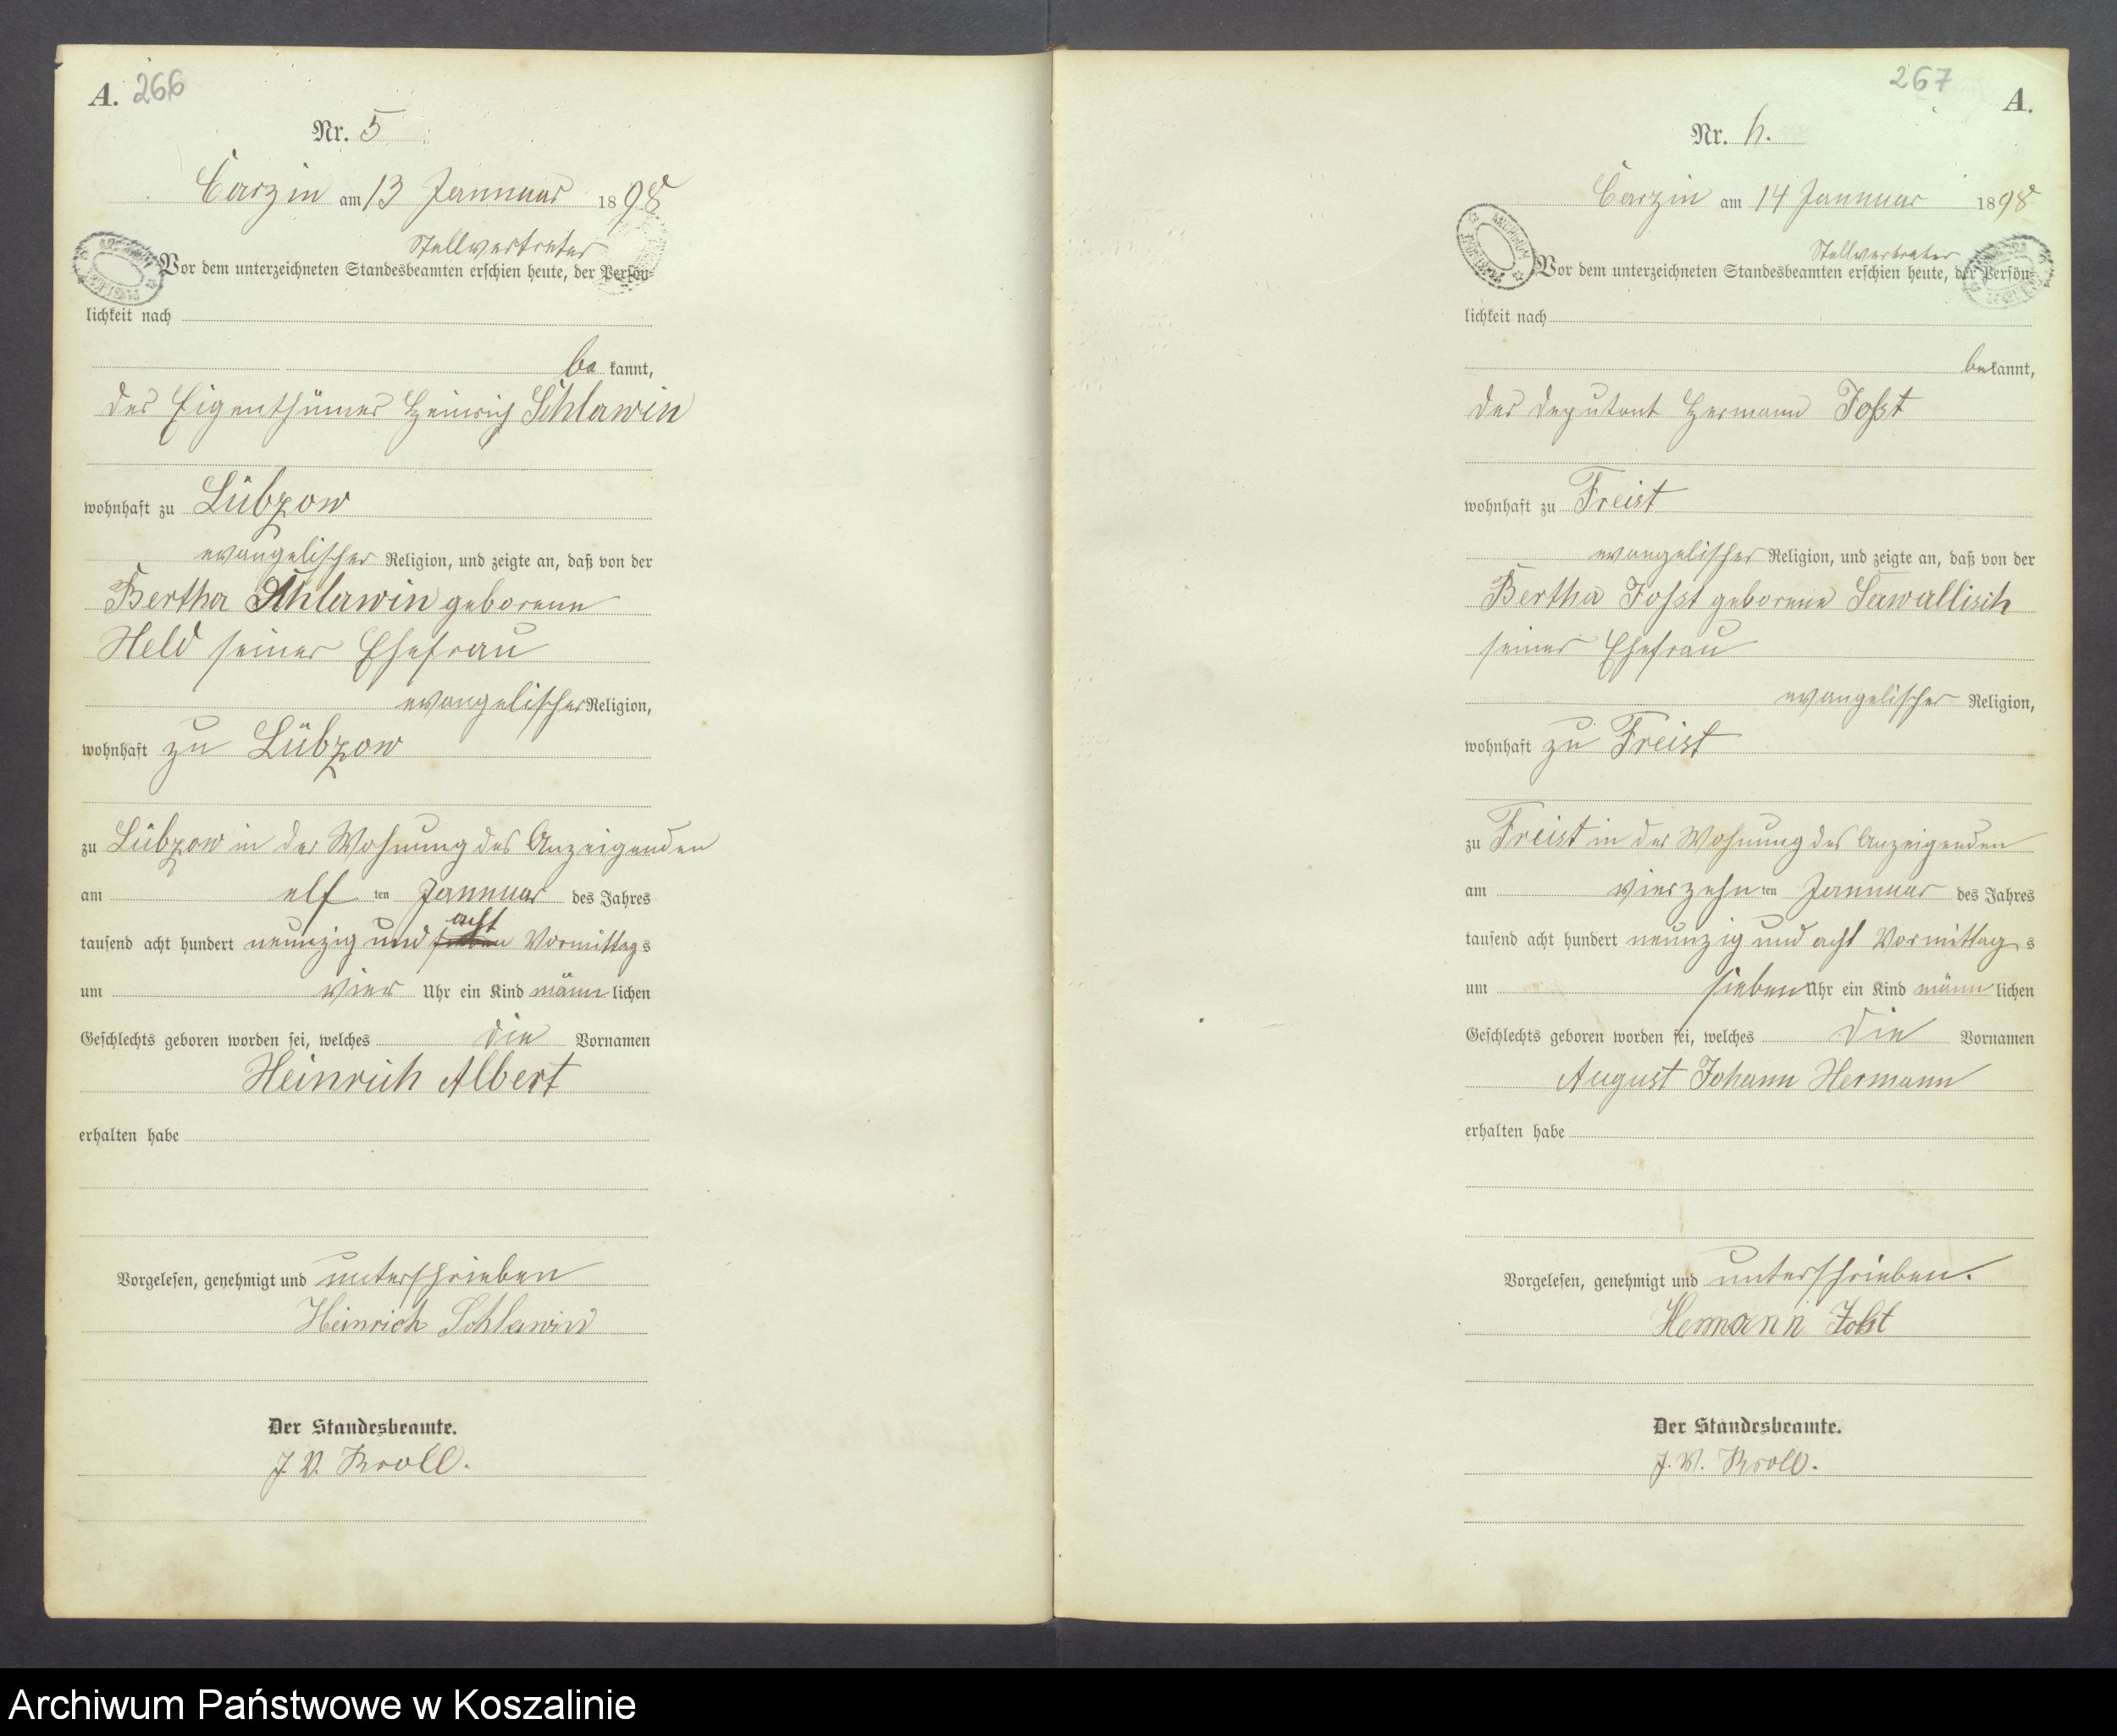 A. 266
Nr. 5
Carzin am 13 Januar 1898
Stellvertreter
Vor dem unterzeichneten Standesbeamten erschien heute, der Persön-
lichkeit nach
be kannt,
der Eigenthümer Heinrich Schlawin
wohnhaft zu Lübzow
evangelischer Religion, und zeigte an, daß von der
Bertha Schlawin geborene
Held seiner Ehefrau
evangelischer Religion,
wohnhaft zu Lübzow
zu Lübzow in der Wohnung des Anzeigenden
am elf ten Januar des Jahres
acht
tausend acht hundert neunzig und sieben Vormittags
um vier Uhr ein Kind männlichen
Geschlechts geboren worden sei, welches die Vornamen
Heinrich Albert
erhalten habe
Vorgelesen, genehmigt und unterschrieben
Heinrich Schlawin
Der Standesbeamte.
J. V. Kroll.
267 A.
Nr. 6.
Carzin am 14 Januar 1898
Stellvertreter
Vor dem unterzeichneten Standesbeamten erschien heute, der Persön-
lichkeit nach
bekannt,
der Deputant Hermann Joßt
wohnhaft zu Freist
evangelischer Religion, und zeigte an, daß von der
Bertha Joßt geborene Sawallisch
seiner Ehefrau
evangelischer Religion,
wohnhaft zu Freist
zu Freist in der Wohnung des Anzeigenden
am vierzehn ten Januar des Jahres
tausend acht hundert neunzig und acht Vormittags
um sieben Uhr ein Kind männlichen
Geschlechts geboren worden sei, welches die Vornamen
August Johann Hermann
erhalten habe
Vorgelesen, genehmigt und unterschrieben.
Hermann Joßt
Der Standesbeamte.
J. V. Kroll.
Archiwum Państwowe w Koszalinie